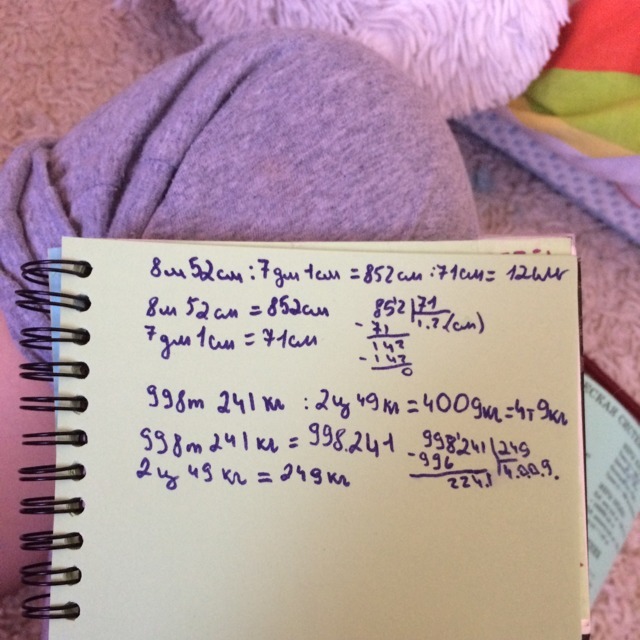 8м 52см : 7дм 1см = 852см : 71см = 12
8м 52см = 852см
7дм 1см = 71см
852 71
- 71 1.2 (см)
142
- 142
0
998т 241кг : 2ц 49кг = 4009кг = 4т 9кг
998т 241кг = 998.241
2ц 49кг = 249кг
998241 249
- 996 4.0.0.9.
2241